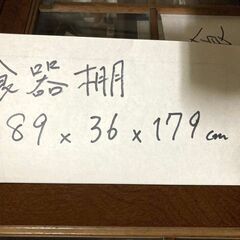 食器棚
89 x 36 x 179 cm